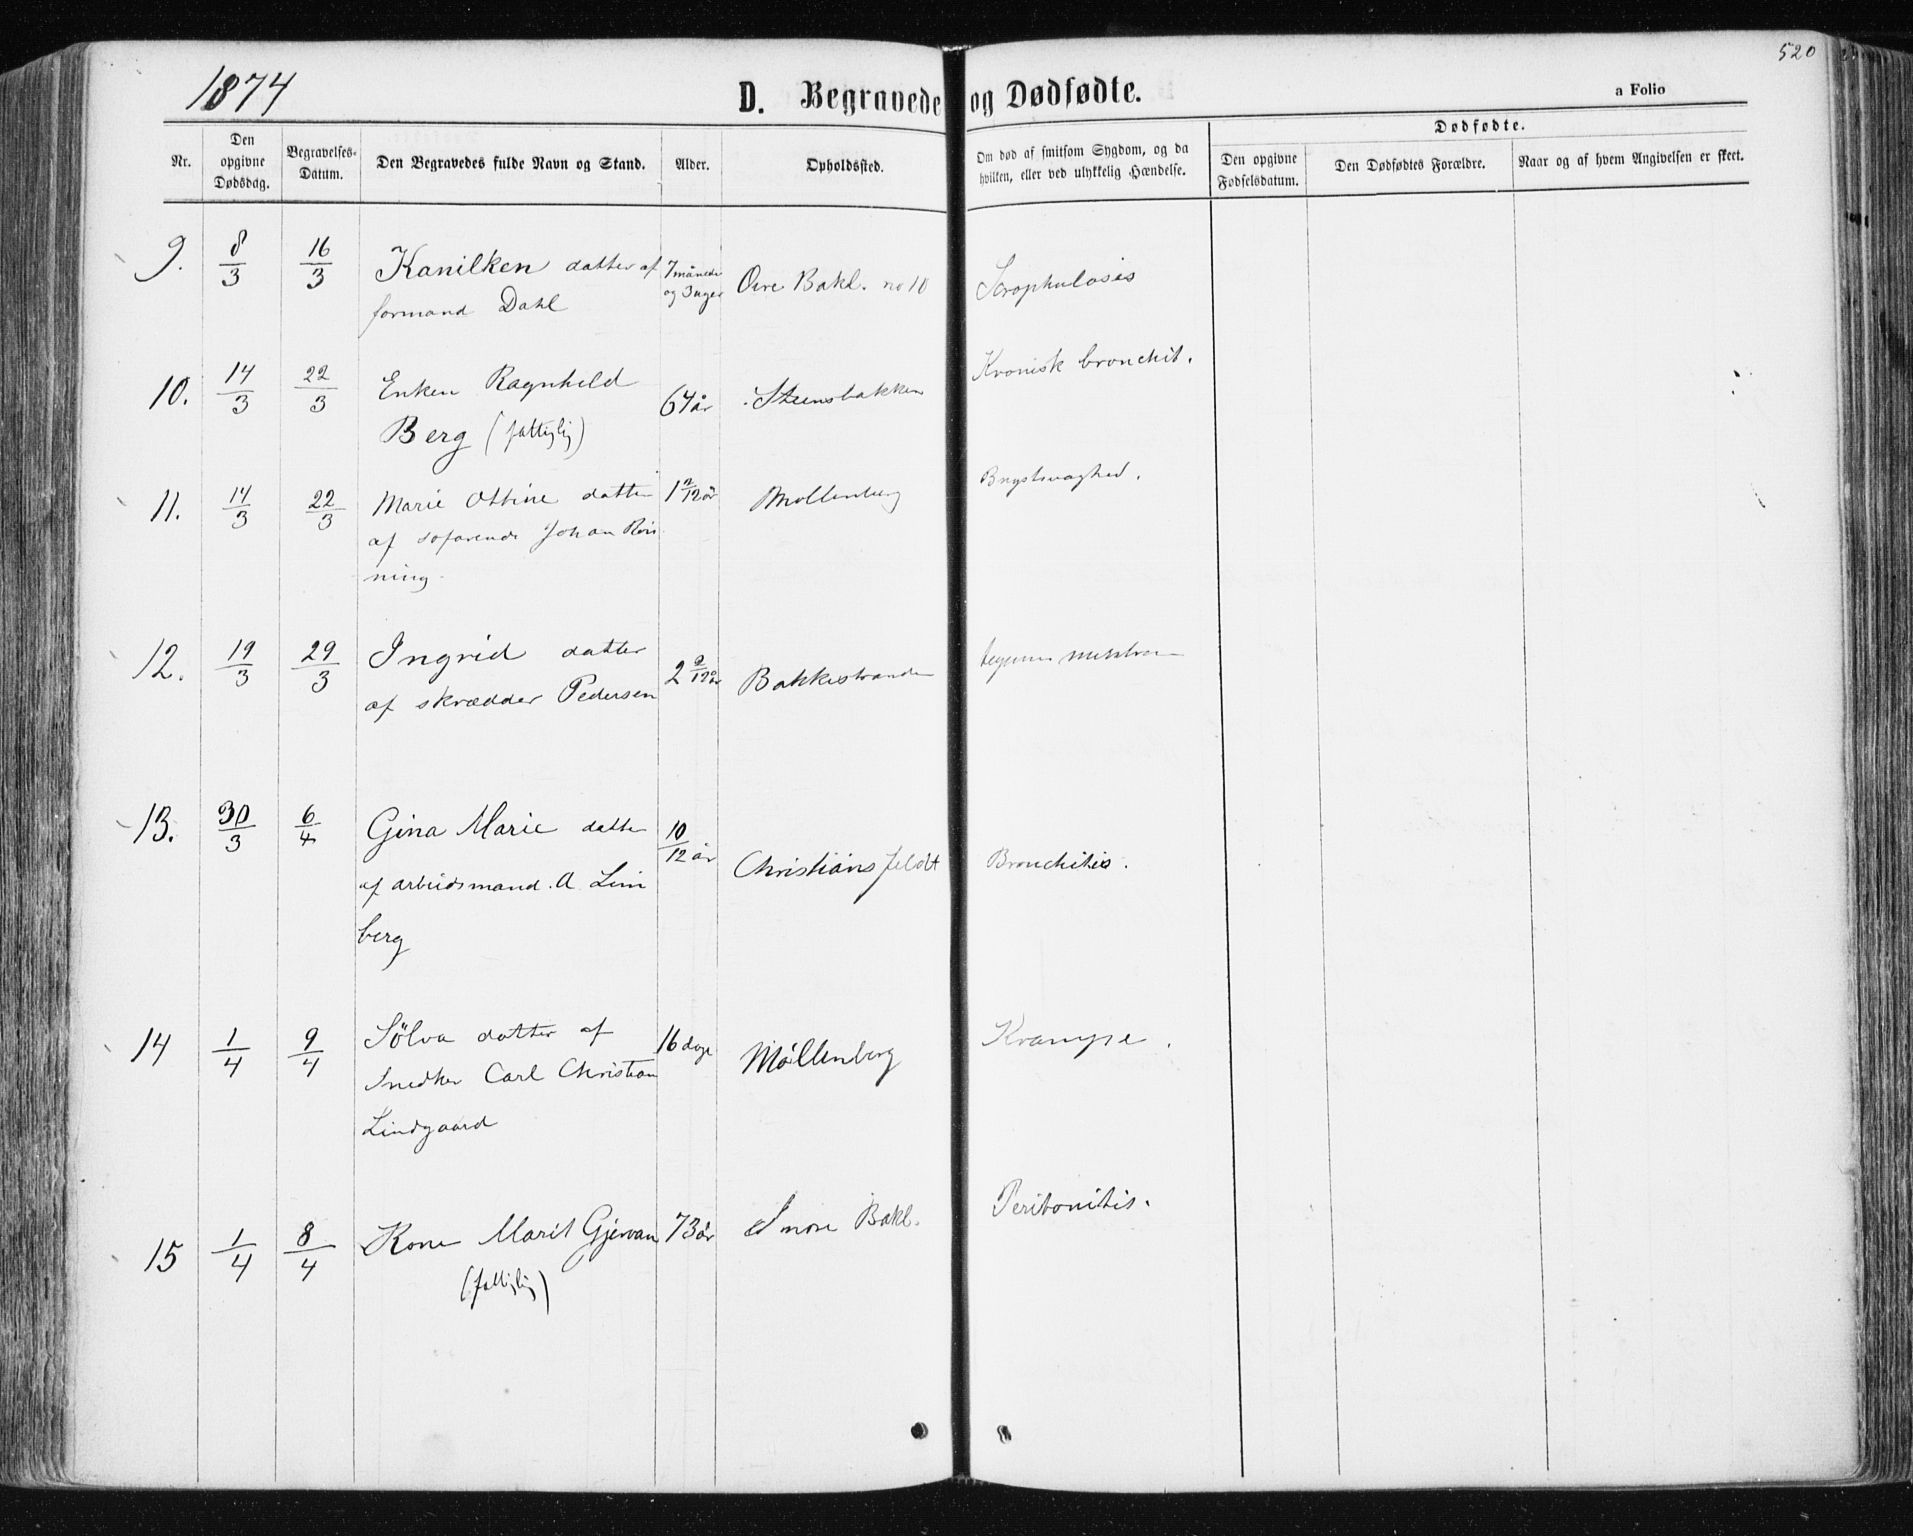 520
1874
D. Begravede og Dødfødte.
a Folio
Nr.
Den opgivne Dødsdag.
Begravelses-Datum.
Den Begravedes fulde Navn og Stand.
Alder.
Opholdssted.
Om død af smitsom Sygdom, og da hvilken, eller ved ulykkelig Hændelse.
Dødfødte.
Den opgivne Fødselsdatum.
Den Dødfødtes Forældre.
Naar og af hvem Angivelsen er skeet.
9. 8/3 16/3 Kanilken datter af 7 månede Øvre Bakl. no 10 Scrophulosis
formand Dahl og 3 uger
10. 14/3 22/3 Enken Ragnhild 67 år Steensbakken Kronisk bronchit.
Berg (fattiglig)
11. 14/3 22/3 Marie Ottine datter 1 2/12 år Mollenberg Brystsvaghed.
af sofarende Johan Røn
ning
12. 19/3 29/3 Ingrid datter 2 9/12 år Bakkestranden
af skrædder Pedersen
13. 30/3 6/4 Gina Marie datter 10/12 år Christiansfeldt Bronchitis.
af arbeidsmand. A. Lim
berg
14 1/4 9/4 Sölva datter af 16 dage Möllenberg Krampe.
Snedker Carl Christian
Lindgaard
15 1/4 8/4 Kone Marit Gjervan 73 år Bakl. Peritonitis.
(fattiglig)